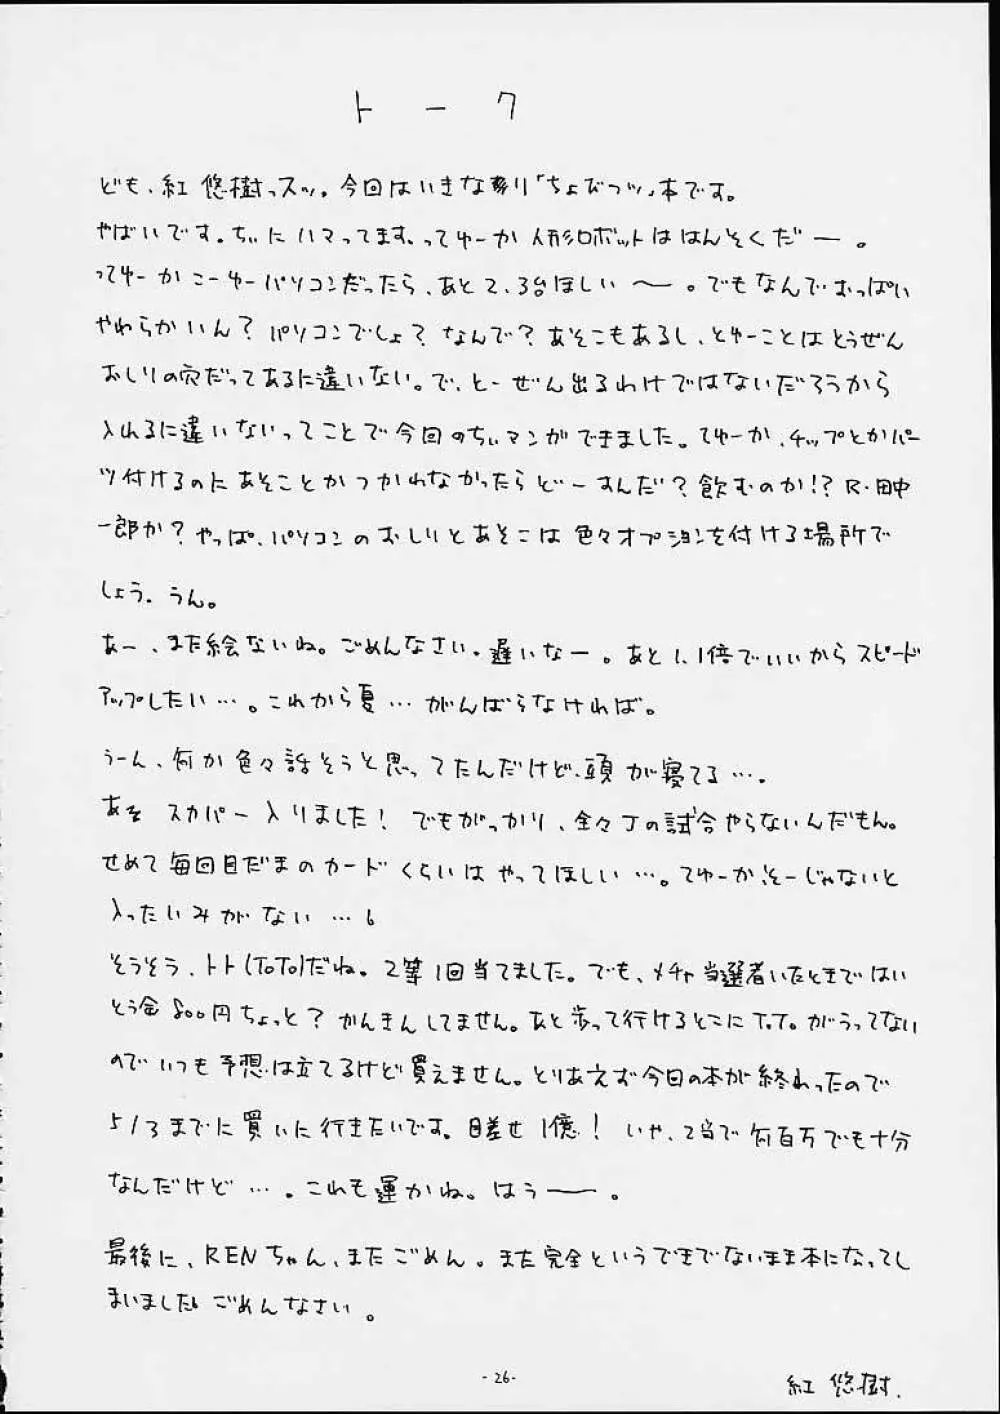 トーク
ども、紅 悠樹っスッ。今回はいきなり「ちょびっツ」本です。
やばいです。ちぃにハマってます、ってゆーか人形ロボットははんそくだー。
ってゆーかこーゆーパソコンだったら、あと2、3台ほしい〜。でもなんでおっぱい
やわらかいん？パソコンでしょ？なんで？あそこもあるし、とゆーことはとうぜん
おしりの穴だってあるに違いない。で、とーぜん出るわけではないだろうから
入れるに違いないってことで今回のちぃマンガができました。てゆーか、チップとかパー
ツ付けるのにあそことかつかわなかったらどーすんだ？飲むのか!?R・田中
一郎か？やっぱ、パソコンのおしりとあそこは色々オプションを付ける場所で
しょう、うん。
あー、また絵ないね。ごめんなさい。遅いなー。あと1、1倍でいいからスピード
アップしたい…。これから夏…がんばらなければ。
うーん、何か色々話そうと思ってたんだけど、頭が寝てる…。
あそ スカパー入りました！でもがっかり、全々Jの試合やらないんだもん。
せめて毎回目だまのカードくらいはやってほしい…。てゆーか、そーじゃないと
入ったいみがない…。
そうそう、トト(ToTo)だね。2等1回当てました。でも、メチャ当選者いたときではい
とう金800円ちょっと？かんきんしてません。あと歩って行けるとこにT.T.がうってない
のでいつも予想は立てるけど買えません。とりあえず今日の本が終わったので
5/3までに買いに行きたいです。目差せ1億！いや、2当で何百万でも十分
なんだけど…。これも運かね。はぅー。
最後に、RENちゃん、またごめん。また完全というできでないまま本になってし
まいました。ごめんなさい。
-26-
紅 悠樹.